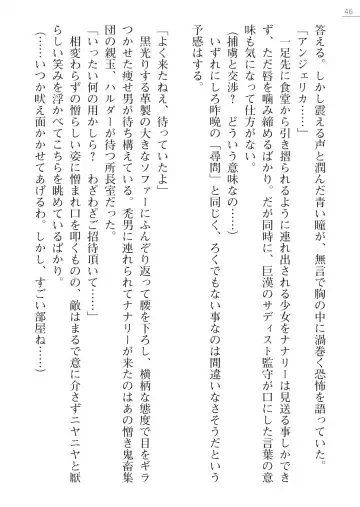 46
答える。しかし震える声と潤んだ青い瞳が、無言で胸の中に渦巻く恐怖を語っていた。
「アンジェリカ……」
一足先に食堂から引き摺られるように連れ出される少女をナナリーは見送る事しかでき
ず、ただ唇を噛み締めるばかり。だが同時に、巨漢のサディスト監守が口にした言葉の意
味も気になって仕方がない。
（捕虜と交渉？　どういう意味なの……）
いずれにしろ昨晩の「尋問」と同じく、ろくでもない事なのは間違いなさそうだという
予感はする。
「よく来たねえ、待っていたよ」
黒光りする革製の大きなソファーにふんぞり返って腰を下ろし、横柄な態度で目をギラ
つかせた痩せ男が待ち構えている。禿男に連れられてナナリーが来たのはあの憎き鬼畜集
団の親玉、ハルダーが待つ所長室だった。
「いったい何の用かしら？　わざわざご招待頂いて……」
相変わらずの憎らしい姿に憎まれ口を叩くものの、敵はまるで意に介さずニヤニヤと厭
らしい笑みを浮かべてこちらを眺めているばかり。
（……いつか吠え面かかせてあげるわ。しかし、すごい部屋ね……）